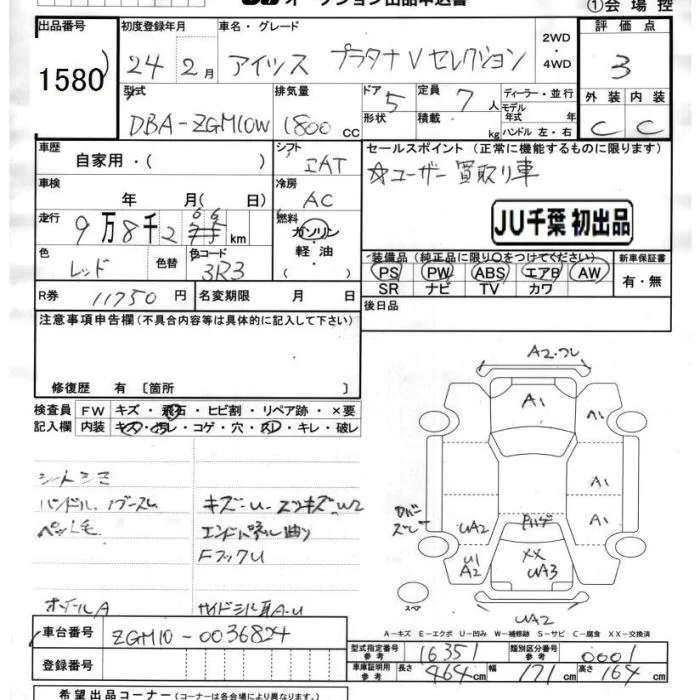 オークション出品申込書 ①会場控
出品番号 初度登録年月 車名・グレード 2WD・4WD 評価点
1580 24年2月 アイシス プラタナVセレクション 3
型式 排気量 ドア形状 定員 積載 ディーラー・並行
モデル年式 年式
ハンドル 左・右
外装 内装
DBA-ZGM10W 1800cc 5 7人 kg C C
車歴 自家用・( ) シフト IAT
セールスポイント(正常に機能するものに限ります)
☆ユーザー買取り車
車検 年 月( 日) 冷房 AC
JU千葉 初出品
走行 9万8千2 69 km 燃料 ガソリン 軽油( )
色 レッド 色替 色コード 3R3
装備品(純正品に限り○をつけてください) 新車保証書
PS PW ABS エアB AW 有・無
SR ナビ TV カワ
R券 11750円 名変期限 月 日 後日品
注意事項申告欄(不具合内容等は具体的に記入して下さい)
修復歴 有〔箇所 〕
検査員 FW キズ・飛石・ヒビ割・リペア跡・×要
記入欄 内装 キズ・汚レ・コゲ・穴・スレ・キレ・破レ
シートシミ
ハンドル・ノブスレ キズ・U スリキズ・W2
ペット毛 エンドパネル曲り
FフックU
ホイールA サイドシル A・U
A2・スレ
A1 A1
A1
A1
UA2
U1
A2
XX
UA3
UA2
スペア
A-キズ E-エクボ U-凹み W-補修跡 S-サビ C-腐食 XX-交換済
車台番号 ZGM10-0036824
型式指定番号 参考 16351 類別区分番号 参考 0001
登録番号 車庫証明用 参考 長さ 464cm 幅 171cm 高さ 164cm
希望出品コーナー(コーナーは各会場により異なります。)